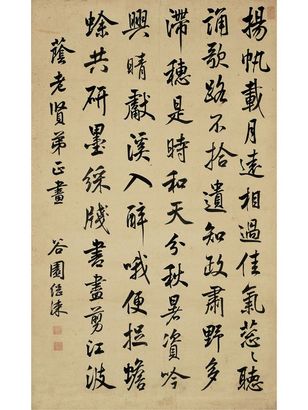 揚帆載月遠相過佳氣葱〻聽
誦歌路不拾遺知政肅野多
滯穗是時和天分秋暑資吟
興晴獻溪入醉哦便捉蟾
蜍共研墨綵牋書盡剪江波
蔭老賢弟正畫
谷園継涑